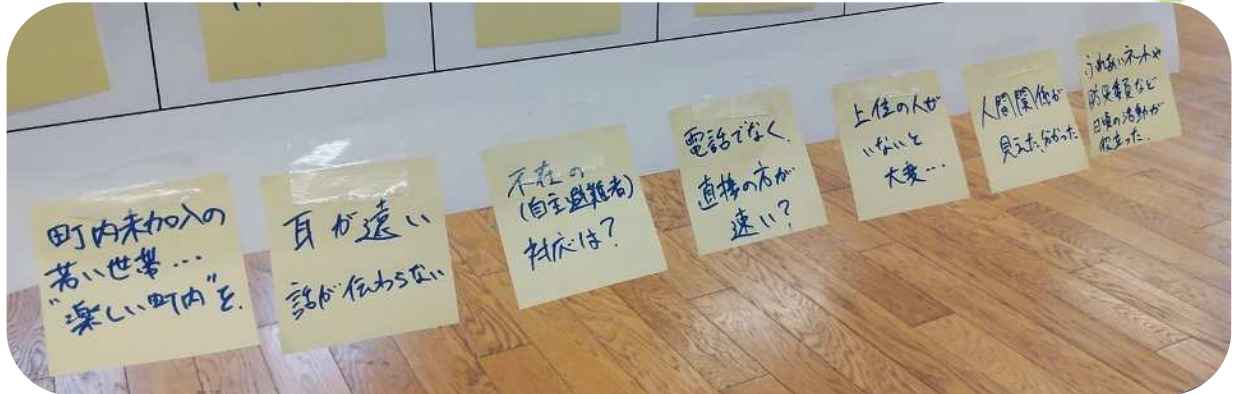 町内未加入の
若い世帯…
"楽しい町内"を.
耳が遠い
話が伝わらない
不在の
(自主避難者)
対応は?
電話でなく、
直接の方が
速い?
上位の人が
いないと
大変…
人間関係が
見えた、分かった
ふれあいネットや
防災委員など
日頃の活動が
役立った.